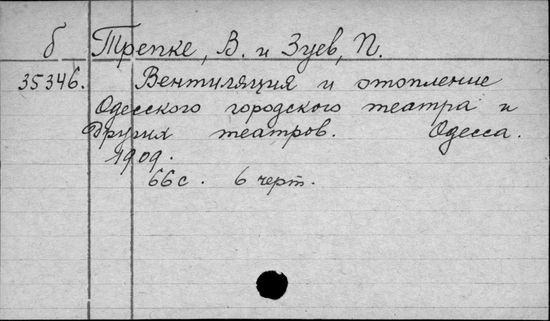 б Трепке, В. и Зуев, П.
35346. Вентиляция и отопление
Одесского городского театра и
других театров. Одесса.
1909.
66 с. 6 черт.